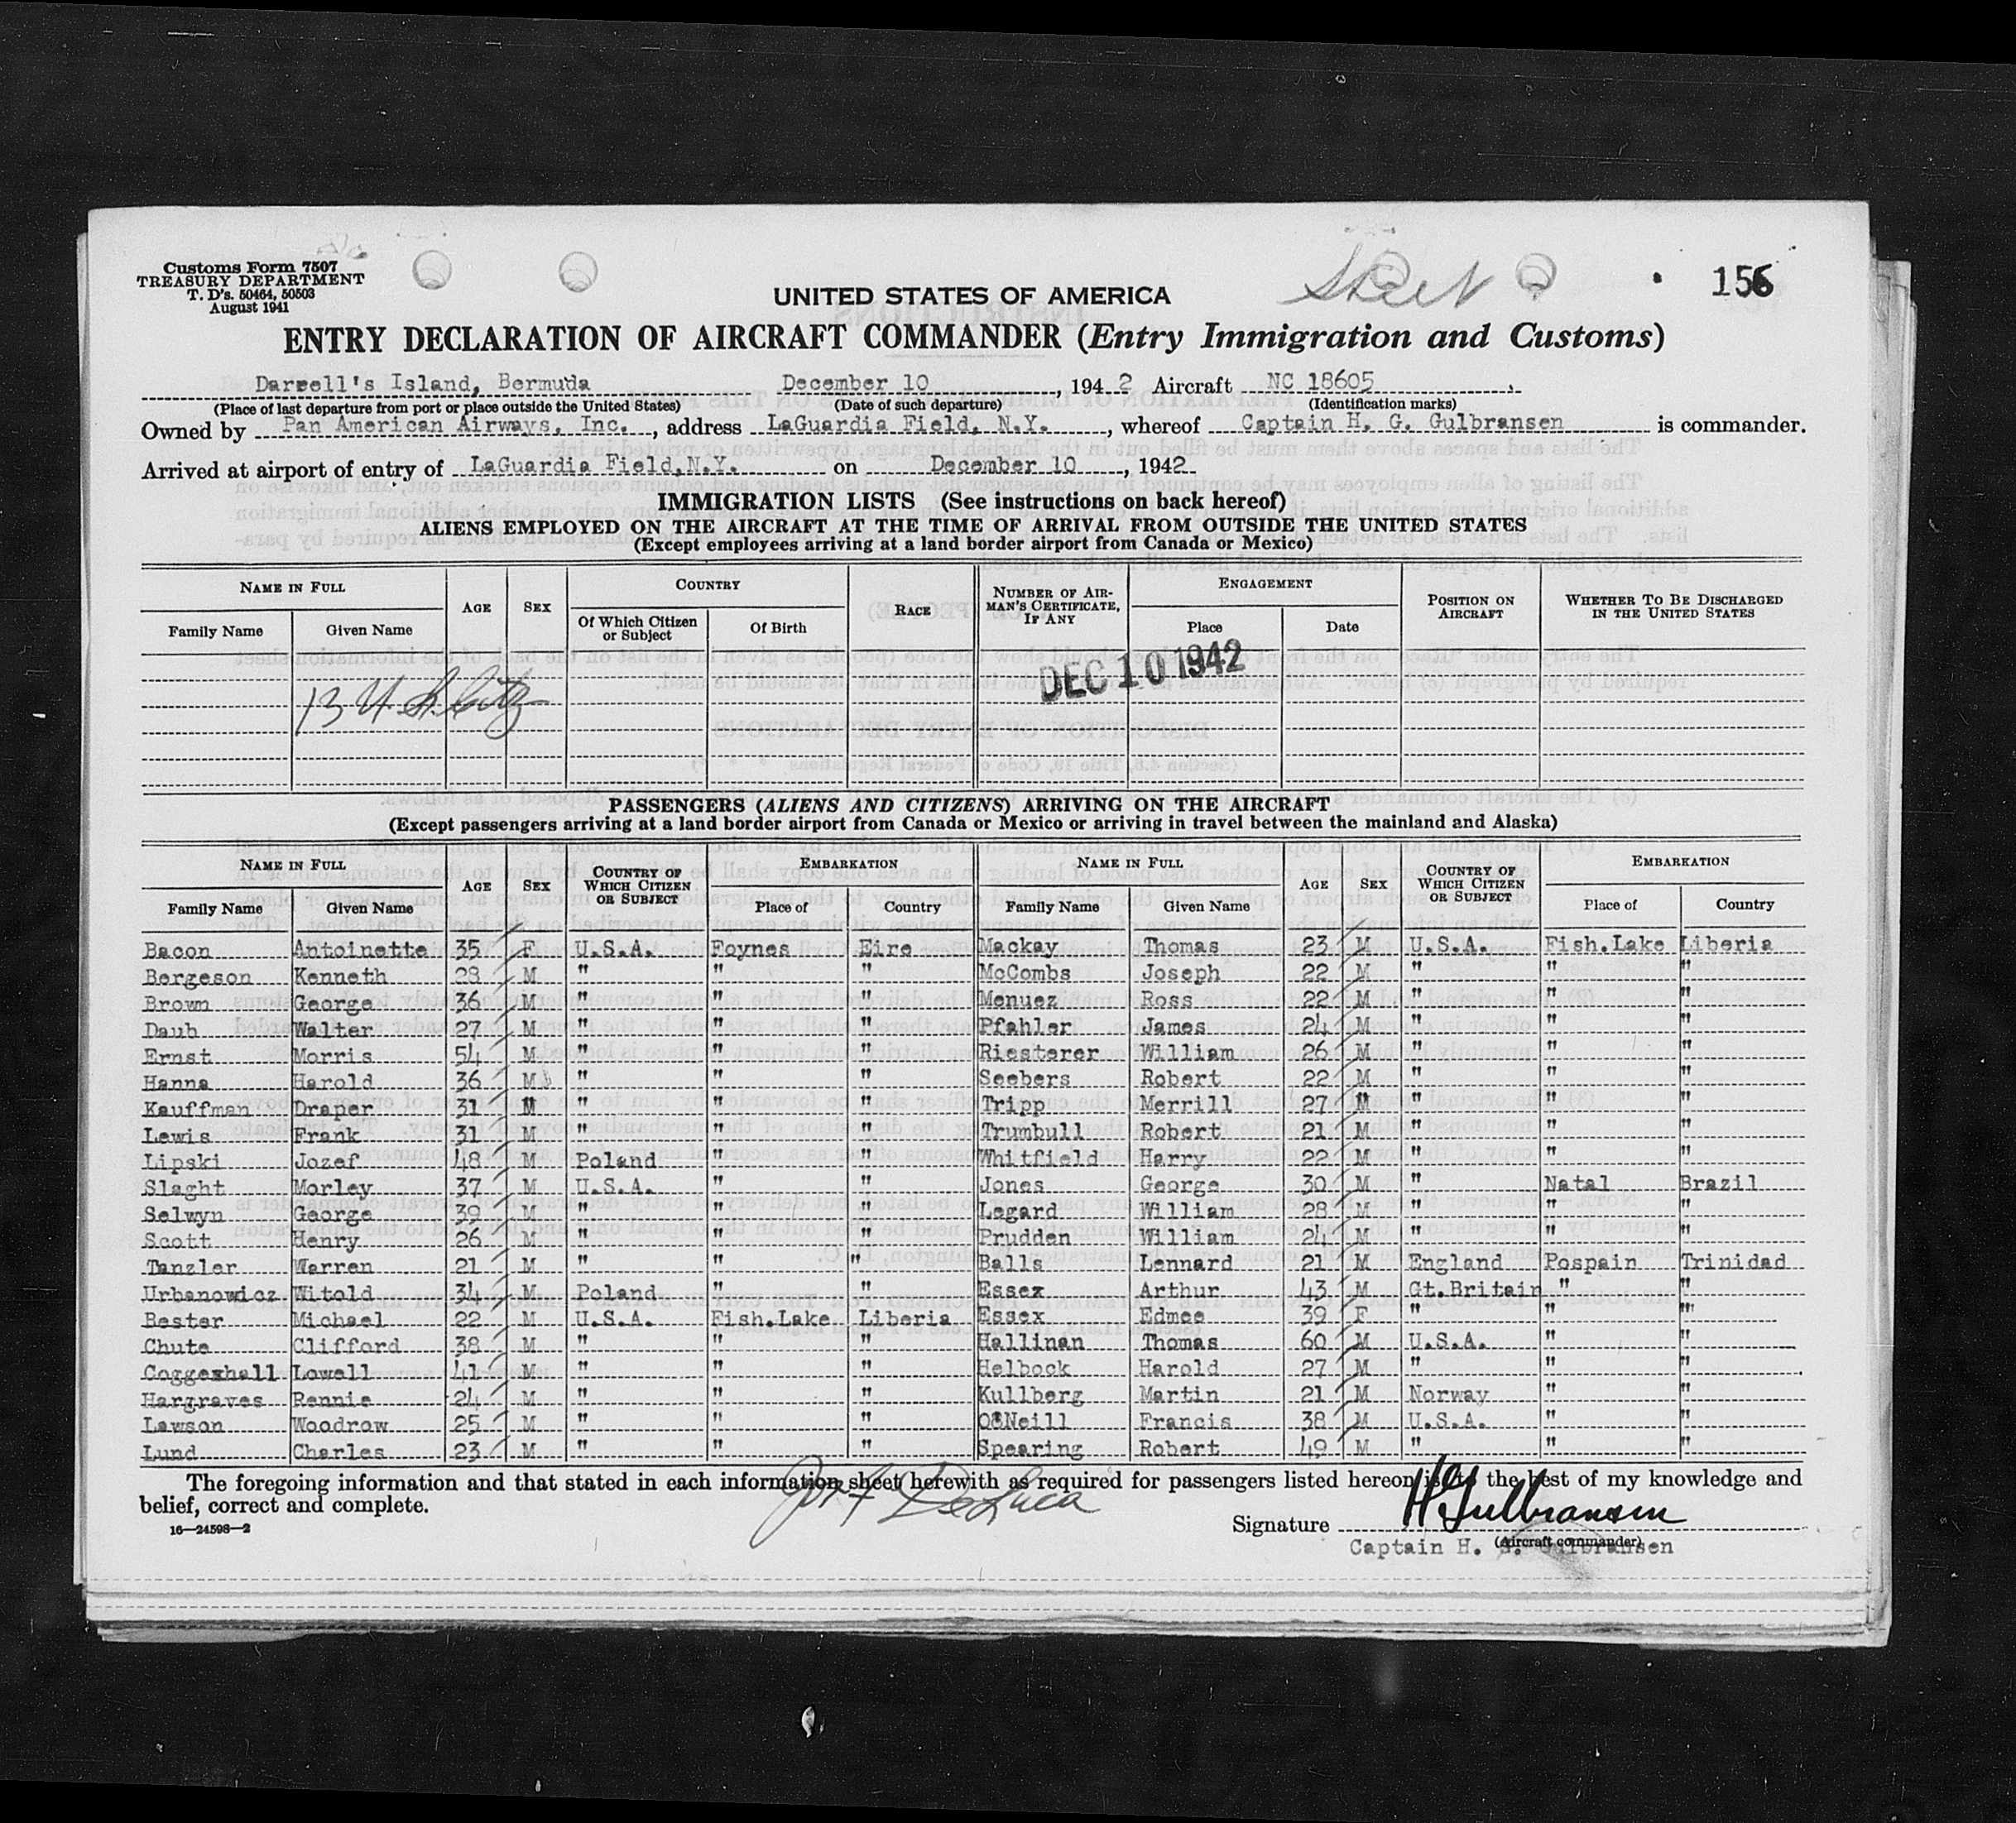 Customs Form 7507
TREASURY DEPARTMENT
T. D's. 50464, 50503
August 1941
156
UNITED STATES OF AMERICA
ENTRY DECLARATION OF AIRCRAFT COMMANDER (Entry Immigration and Customs)
Darrell's Island, Bermuda December 10, 1942 Aircraft NC 18605
(Place of last departure from port or place outside the United States) (Date of such departure) (Identification marks)
Owned by Pan American Airways, Inc., address LaGuardia Field, N.Y., whereof Captain H. G. Gulbransen is commander.
Arrived at airport of entry of LaGuardia Field,N.Y. on December 10, 1942
IMMIGRATION LISTS (See instructions on back hereof)
ALIENS EMPLOYED ON THE AIRCRAFT AT THE TIME OF ARRIVAL FROM OUTSIDE THE UNITED STATES
(Except employees arriving at a land border airport from Canada or Mexico)
NAME IN FULL AGE SEX COUNTRY RACE NUMBER OF AIRMAN'S CERTIFICATE, IF ANY ENGAGEMENT POSITION ON AIRCRAFT WHETHER TO BE DISCHARGED IN THE UNITED STATES
Family Name Given Name Of Which Citizen or Subject Of Birth Place Date
DEC 10 1942
13 U.S. Citz
PASSENGERS (ALIENS AND CITIZENS) ARRIVING ON THE AIRCRAFT
(Except passengers arriving at a land border airport from Canada or Mexico or arriving in travel between the mainland and Alaska)
NAME IN FULL AGE SEX COUNTRY OF WHICH CITIZEN OR SUBJECT EMBARKATION NAME IN FULL AGE SEX COUNTRY OF WHICH CITIZEN OR SUBJECT EMBARKATION
Family Name Given Name Place of Country Family Name Given Name Place of Country
Bacon Antoinette 35 F U.S.A. Foynes Eire Mackay Thomas 23 M U.S.A. Fish.Lake Liberia
Bergeson Kenneth 28 M " " " McCombs Joseph 22 M " " "
Brown George 36 M " " " Menuez Ross 22 M " " "
Daub Walter 27 M " " " Pfahler James 24 M " " "
Ernst Morris 54 M " " " Riesterer William 26 M " " "
Hanna Harold 36 M " " " Seebers Robert 22 M " " "
Kauffman Draper 31 M " " " Tripp Merrill 27 M " " "
Lewis Frank 31 M " " " Trumbull Robert 21 M " " "
Lipski Jozef 48 M Poland " " Whitfield Harry 22 M " " "
Slaght Morley 37 M U.S.A. " " Jones George 30 M " Natal Brazil
Selwyn George 39 M " " " Legard William 28 M " " "
Scott Henry 26 M " " " Prudden William 24 M " " "
Tanzler Warren 21 M " " " Balls Lennard 21 M England Pospain Trinidad
Urbanowicz Witold 34 M Poland " " Essex Arthur 43 M Gt.Britain " "
Bester Michael 22 M U.S.A. Fish.Lake Liberia Essex Edmee 39 F " " "
Chute Clifford 38 M " " " Hallinan Thomas 60 M U.S.A. " "
Coggeshall Lowell 41 M " " " Helbock Harold 27 M " " "
Hargraves Rennie 24 M " " " Kullberg Martin 21 M Norway " "
Lawson Woodrow 25 M " " " O'Neill Francis 38 M U.S.A. " "
Lund Charles 23 M " " " Spearing Robert 49 M " " "
The foregoing information and that stated in each information sheet herewith as required for passengers listed hereon is to the best of my knowledge and
belief, correct and complete.
16—24598—2
Signature H Gulbransen
(Aircraft commander)
Captain H. G. Gulbransen